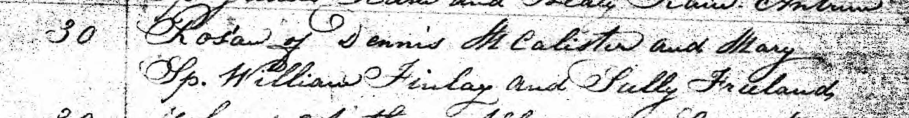 and Antrim
30 Rosan of Dennis McAlister and Mary
Sp. William Finlay and Sally Freeland